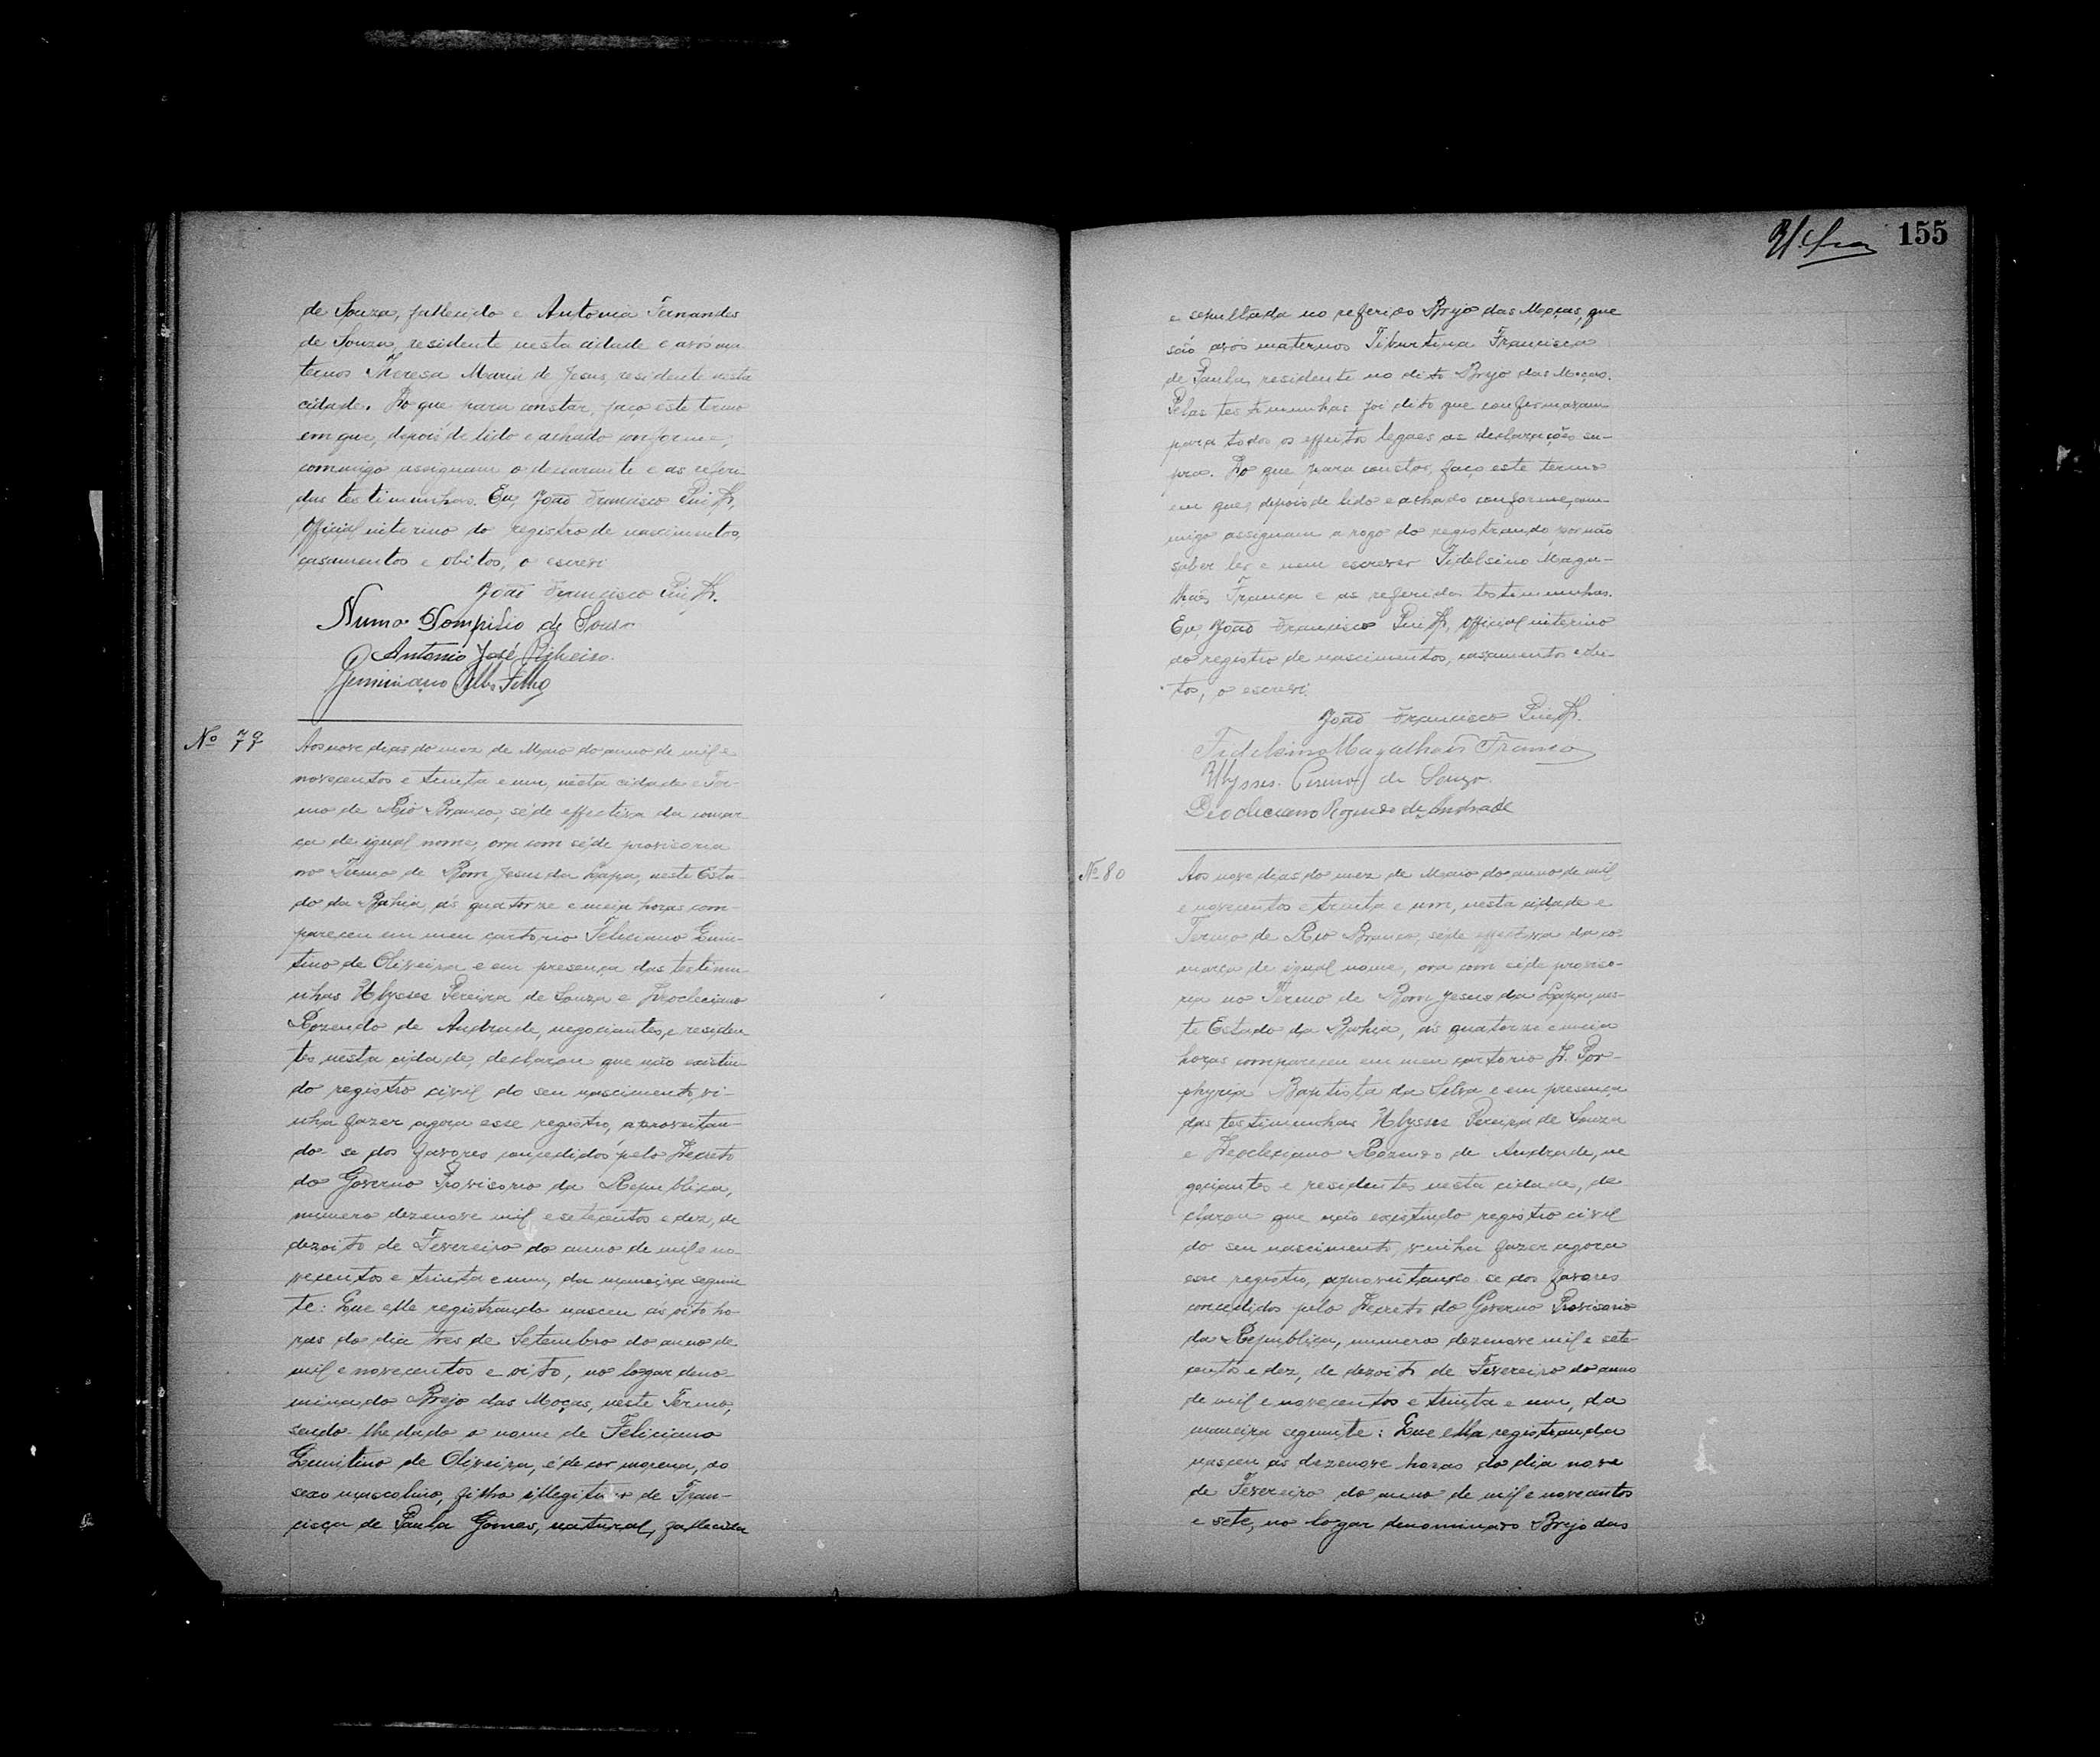 de Souza, fallecido e Antonia Fernandes
de Souza, residente nesta cidade e avós ma-
ternos Theresa Maria de Jesus, residente nesta
cidade. Do que para constar, faço este termo
em que, depois de lido e achado conforme,
commigo assignam o declarante e as referi-
das testimunhas. Eu, João Francisco
Official interino do registro de nascimentos,
casamentos e obitos, o escrevi
João Francisco
Numa Pompilio de Souza
Antonio José Pinheiro.
Geminiano Filho
Nº 79
Aos nove dias do mez de Maio do anno de mil e
novecentos e trinta e um, nésta cidade e Ter-
mo de Rio Branco, séde effectiva da comar-
ca de igual nome, ora com séde provisoria
no Termo de Bom Jesus da Lapa, neste Esta-
do da Bahia, ás quatorze e meia horas com-
pareceu em meu cartorio Feliciano Quin-
tino de Oliveira e em presença das testimu-
nhas Ulysses Pereira de Souza e Deocleciano
Rozendo de Andrade, negociantes, e residen-
tes nesta cidade, declarou que não existin-
do registro civil do seu nascimento, vi-
nha fazer agora esse registro, aproveitan-
do-se dos favores concedidos pelo Decreto
do Governo Provisorio da Republica,
numero dezenove mil e setecentos e dez, de
dezoito de Fevereiro do anno de mil e no-
vecentos e trinta e um, da maneira seguin-
te: Que elle registrando nasceu ás oito ho-
ras do dia tres de Setembro do anno de
mil e novecentos e oito, no logar deno-
minado Brejo das Moças, neste Termo,
sendo-lhe dado o nome de Feliciano
Quintino de Oliveira, é de cor morena, do
sexo masculino, filho illegitimo de Fran-
cisca de Paula Gomes, natural, fallecida
155
e sepultada no referido Brejo das Moças, que
são avós maternos Tiburtina Francisca
de Paula, residente no dito Brejo das Moças.
Pelas testimunhas foi dito que confirmavam
para todos os effeitos legaes as declarações su-
pra. Do que para constar, faço este termo
em que, depois de lido e achado conforme, com-
migo assignam a rogo do registrando, por não
saber ler e nem escrever Fidelsino Maga-
lhães França e as referidas testimunhas.
Eu, João Francisco Official interino
do registro de nascimentos, casamentos e obi-
tos, o escrevi.
João Francisco
Fidelsino Magalhães França
Ulysses Pereira de Souza.
Deocleciano Rozendo de Andrade
Nº 80
Aos nove dias do mez de Maio do anno de mil
e novecentos e trinta e um, nesta cidade e
Termo de Rio Branco, séde effectiva da co-
marca de igual nome, ora com séde proviso-
ria no Termo de Bom Jesus da Lapa, nes-
te Estado da Bahia, ás quatorze e meia
horas compareceu em meu cartorio D. Por-
phyria Baptista da Silva e em presença
das testimunhas Ulysses Pereira de Souza
e Deocleciano Rozendo de Andrade, ne-
gociantes e residentes nesta cidade, de-
clarou que não existindo registro civil
do seu nascimento, vinha fazer agora
esse registro, aproveitando-se dos favores
concedidos pelo Decreto do Governo Provisorio
da Republica, numero dezenove mil e sete-
centos e dez, de dezoito de Fevereiro do anno
de mil e novecentos e trinta e um, da
maneira seguinte: Que ella registranda
nasceu ás dezenove horas do dia nove
de Fevereiro do anno de mil e novecentos
e sete, no logar denominado Brejo das